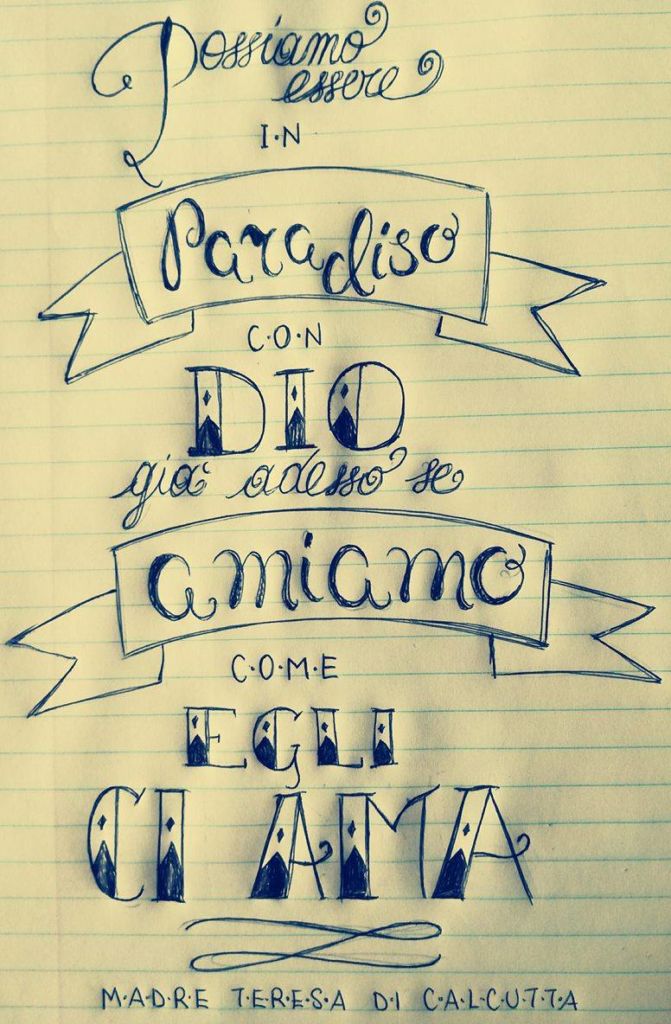 Possiamo
essere
I·N
Paradiso
C·O·N
DIO
già adesso se
amiamo
C·O·M·E
EGLI
CI AMA
M·A·D·R·E T·E·R·E·S·A D·I C·A·L·C·U·T·T·A